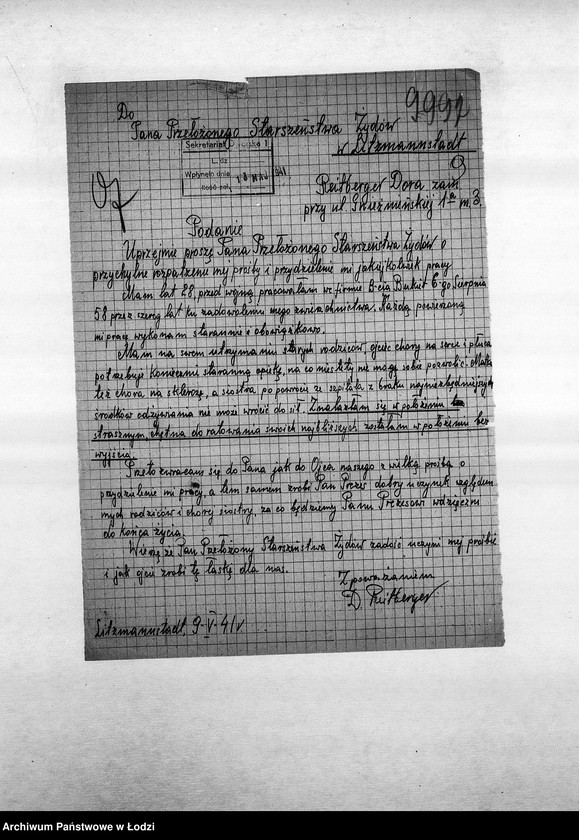 9991
Do
Pana Przełożonego Starszeństwa Żydów
w Litzmannstadt
Sekretariat
L. dz.
Wpłynęło dnia 10 MAJ 1941
Ilość zał.
Reitberger Dora zam.
przy ul. 1a m. 3.
Podanie
Uprzejmie proszę Pana Przełożonego Starszeństwa Żydów o
przychylne rozpatrzenie mej prośby i przydzielenie mi jakiejkolwiek pracy
Mam lat 28, przed wojną pracowałam w firmie B-cia Bukiet 6-go Sierpnia
58 przez szereg lat ku zadowoleniu mego zwierzchnictwa. Każdą powierzoną
mi pracę wykonam starannie i obowiązkowo.
Mam na swem utrzymaniu starych rodziców, ojciec chory na serce i płuca
potrzebuje koniecznie staranną opiekę, na co niestety nie mogę sobie pozwolić. Matka
też chora, na sklerozę, a siostra po powrocie ze szpitala z braku najniezbędniejszych
środków odżywiania nie może wrócić do sił. Znalazłam się w położeniu
strasznym, chętna do ratowania swoich najbliższych zostałam w położeniu bez
wyjścia.
Przeto zwracam się do Pana jak do Ojca naszego z wielką prośbą o
przydzielenie mi pracy, a tem samem zrobi Pan Prezes dobry uczynek względem
mych rodziców i chorej siostry, za co będziemy Panu Prezesowi wdzięczni
do końca życia.
Wierzę że Pan Przełożony Starszeństwa Żydów zadość uczyni mej prośbie
i jak ojciec zrobi tę łaskę dla nas.
Z poważaniem
D. Reitberger
Litzmannstadt, 9-V-41 r
Archiwum Państwowe w Łodzi